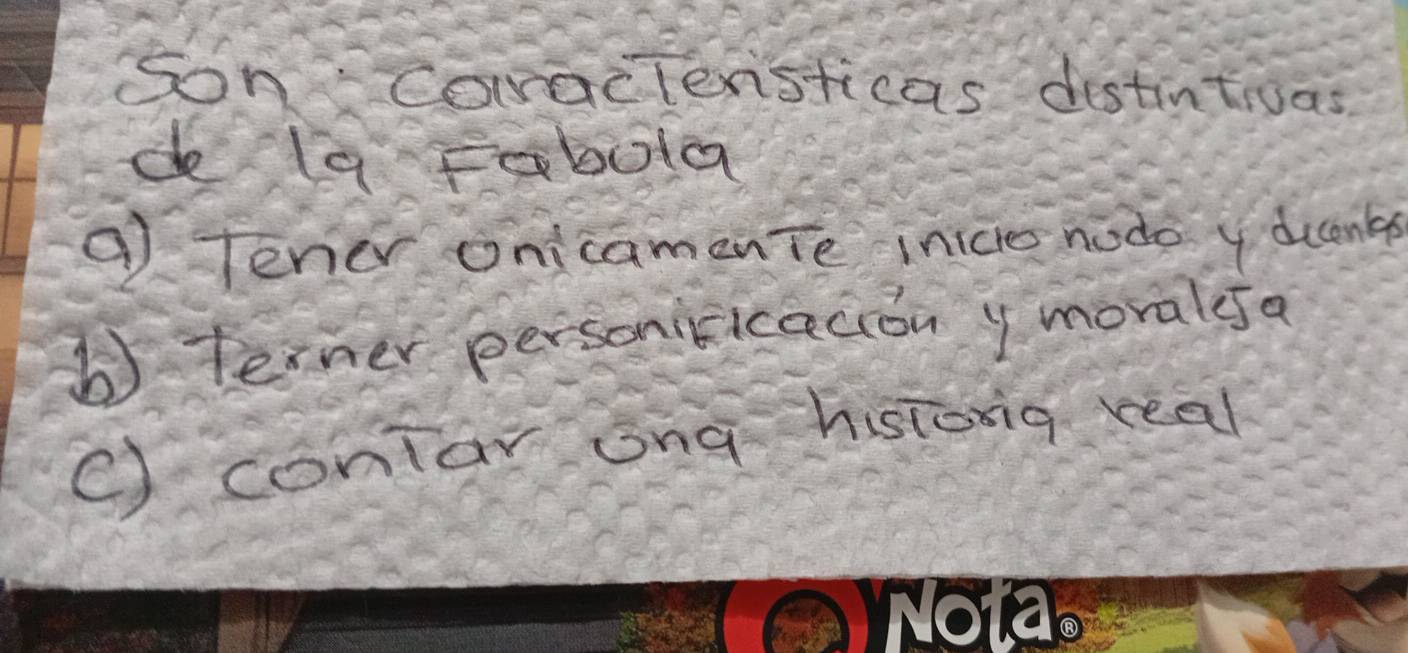 Son características distintivas
de la Fabula
a) Tener unicamente inicio nudo y
b) Terner personificación y moraleja
c) contar una historia real
Nota®